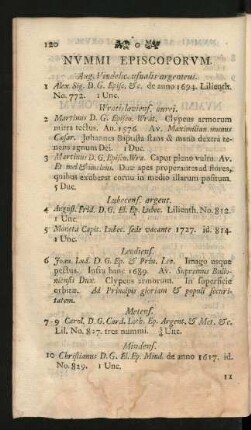 120
NVMMI EPISCOPORVM.
Aug. Vindelic. usualis argenteus.
1 Alex. Sig. D. G. Episc. &c. de anno 1694. Lilienth.
No. 772. 1 Unc.
Wratislaviens. aurei.
2 Martinus D. G. Episcop. Wrat. Clypeus armorum
mitra tectus. An. 1576 Av. Maximilian munus
Cæsar. Johannes Baptista stans & manu dextra te-
nens agnum Dei. 1 Duc.
3 Martinus D. G. Episcop. Wra. Caput pleno vultu Av.
Et mel & Duæ apes properantes ad flores,
quibus exuberat cornu in medio illarum positum.
5 Duc.
Lubecens. argent.
4 August. Frid. D. G. El. Ep. Lubec. Lilienth. No. 812.
1 Unc.
5 Moneta Capit. Lubec. sede vacante 1727. id. 814.
1 Unc.
Leodiens.
6 Joan. Lud. D. G. Ep. & Prin. Leo. Imago usque
pectus. Infra hanc 1689. Av. Supremus Bullio-
niensis Dux. Clypeus armorum. In superficie
orbitæ. Ad Principis gloriam & populi securi-
tatem.
Metens.
7-9 Carol. D. G. Card. Loth. Ep. Argent. & Met. &c.
Lil. No. 827. tres nummi. Unc.
Mindens.
10 Christianus D. G. El. Ep. Mind. de anno 1617. id.
No. 829. 1 Unc.
11